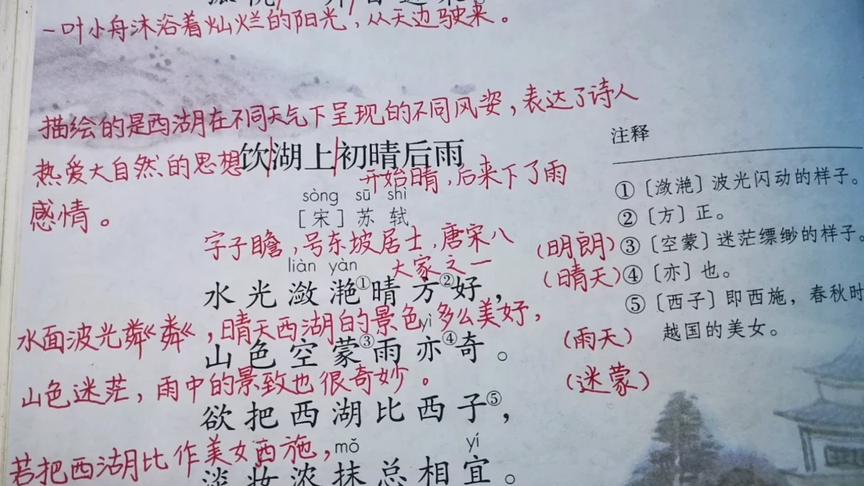 一叶小舟沐浴着灿烂的阳光，从天边驶来。
描绘的是西湖在不同天气下呈现的不同风姿，表达了诗人
热爱大自然的思想
感情。
饮湖上初晴后雨
开始晴，后来下了雨
sòng sū shì
［宋］苏 轼
字子瞻，号东坡居士，唐宋八
大家之一
liàn yàn
水光潋滟①晴方②好，
水面波光粼粼，晴天西湖的景色多么美好，
yì
山色空蒙③雨亦④奇。
山色迷茫，雨中的景致也很奇妙。
欲把西湖比西子⑤，
若把西湖比作美女西施，
mǒ yí
淡妆浓抹总相宜。
（明朗）
（晴天）
（雨天）
（迷蒙）
注释
①〔潋滟〕波光闪动的样子。
②〔方〕正。
③〔空蒙〕迷茫缥缈的样子。
④〔亦〕也。
⑤〔西子〕即西施，春秋时
越国的美女。